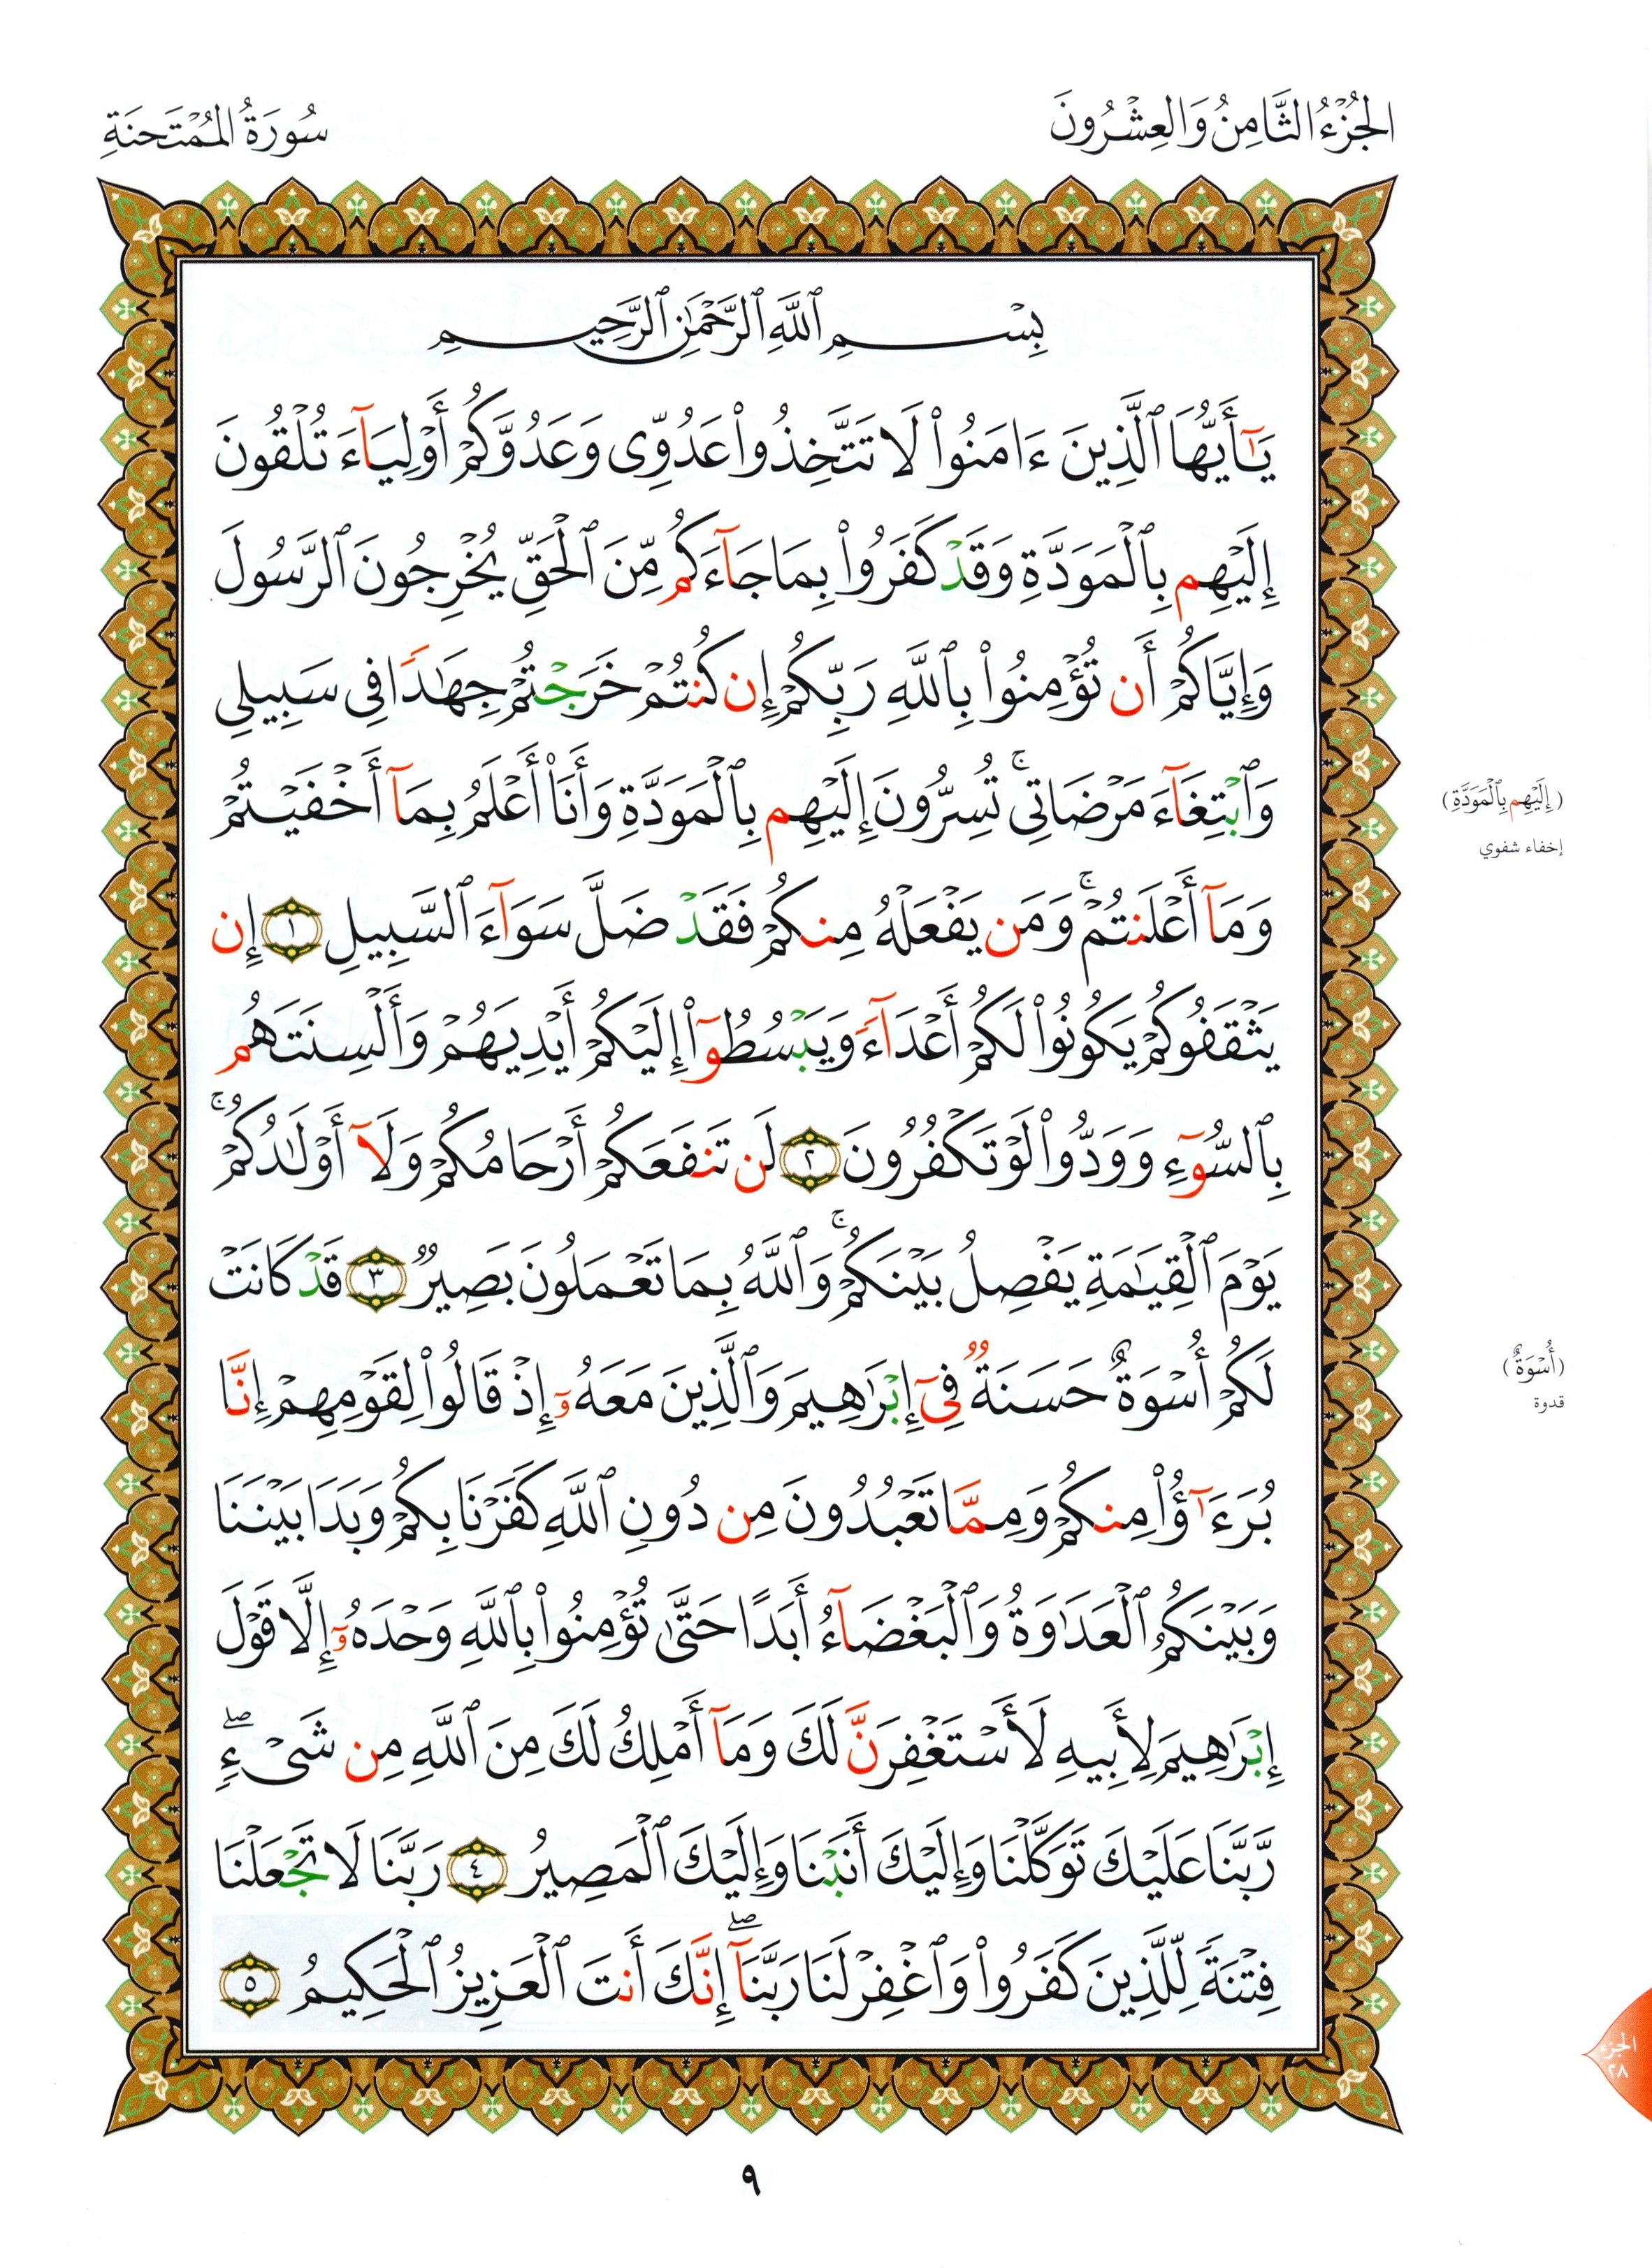 الجُزْءُ الثَّامِنُ وَالعِشْرُونَ
سُورَةُ المُمْتَحنَةِ
بِسْمِ ٱللَّهِ ٱلرَّحْمَٰنِ ٱلرَّحِيمِ
يَٰٓأَيُّهَا ٱلَّذِينَ ءَامَنُوا۟ لَا تَتَّخِذُوا۟ عَدُوِّى وَعَدُوَّكُمْ أَوْلِيَآءَ تُلْقُونَ
إِلَيْهِم بِٱلْمَوَدَّةِ وَقَدْ كَفَرُوا۟ بِمَا جَآءَكُم مِّنَ ٱلْحَقِّ يُخْرِجُونَ ٱلرَّسُولَ
وَإِيَّاكُمْ أَن تُؤْمِنُوا۟ بِٱللَّهِ رَبِّكُمْ إِن كُنتُمْ خَرَجْتُمْ جِهَٰدًا فِى سَبِيلِى
وَٱبْتِغَآءَ مَرْضَاتِى ۚ تُسِرُّونَ إِلَيْهِم بِٱلْمَوَدَّةِ وَأَنَا۠ أَعْلَمُ بِمَآ أَخْفَيْتُمْ
وَمَآ أَعْلَنتُمْ ۚ وَمَن يَفْعَلْهُ مِنكُمْ فَقَدْ ضَلَّ سَوَآءَ ٱلسَّبِيلِ ١ إِن
يَثْقَفُوكُمْ يَكُونُوا۟ لَكُمْ أَعْدَآءً وَيَبْسُطُوٓا۟ إِلَيْكُمْ أَيْدِيَهُمْ وَأَلْسِنَتَهُم
بِٱلسُّوٓءِ وَوَدُّوا۟ لَوْ تَكْفُرُونَ ٢ لَن تَنفَعَكُمْ أَرْحَامُكُمْ وَلَآ أَوْلَٰدُكُمْ ۚ
يَوْمَ ٱلْقِيَٰمَةِ يَفْصِلُ بَيْنَكُمْ ۚ وَٱللَّهُ بِمَا تَعْمَلُونَ بَصِيرٌ ٣ قَدْ كَانَتْ
لَكُمْ أُسْوَةٌ حَسَنَةٌ فِىٓ إِبْرَٰهِيمَ وَٱلَّذِينَ مَعَهُۥٓ إِذْ قَالُوا۟ لِقَوْمِهِمْ إِنَّا
بُرَءَٰٓؤُا۟ مِنكُمْ وَمِمَّا تَعْبُدُونَ مِن دُونِ ٱللَّهِ كَفَرْنَا بِكُمْ وَبَدَا بَيْنَنَا
وَبَيْنَكُمُ ٱلْعَدَٰوَةُ وَٱلْبَغْضَآءُ أَبَدًا حَتَّىٰ تُؤْمِنُوا۟ بِٱللَّهِ وَحْدَهُۥٓ إِلَّا قَوْلَ
إِبْرَٰهِيمَ لِأَبِيهِ لَأَسْتَغْفِرَنَّ لَكَ وَمَآ أَمْلِكُ لَكَ مِنَ ٱللَّهِ مِن شَىْءٍ ۖ
رَّبَّنَا عَلَيْكَ تَوَكَّلْنَا وَإِلَيْكَ أَنَبْنَا وَإِلَيْكَ ٱلْمَصِيرُ ٤ رَبَّنَا لَا تَجْعَلْنَا
فِتْنَةً لِّلَّذِينَ كَفَرُوا۟ وَٱغْفِرْ لَنَا رَبَّنَآ ۖ إِنَّكَ أَنتَ ٱلْعَزِيزُ ٱلْحَكِيمُ ٥
(إِلَيْهِم بِٱلْمَوَدَّةِ)
إخفاء شفوي
(أُسْوَةٌ)
قدوة
الجزء
٢٨
٩